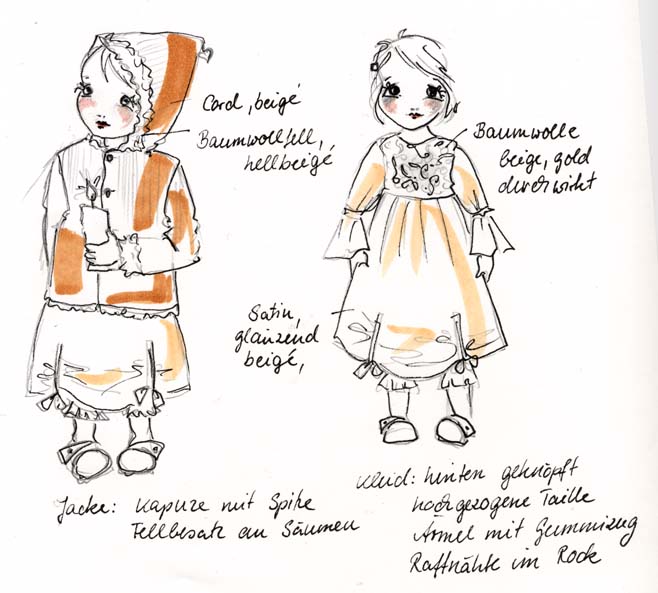 Cord, beigé
Baumwollfell,
hellbeigé
Baumwolle
beige, gold
durchwirkt
Satin,
glänzend
beigé,
Jacke: Kapuze mit Spitze
Fellbesatz an Säumen
Kleid: hinten geknöpft
hochgezogene Taille
Ärmel mit Gummizug
Raffnähte im Rock